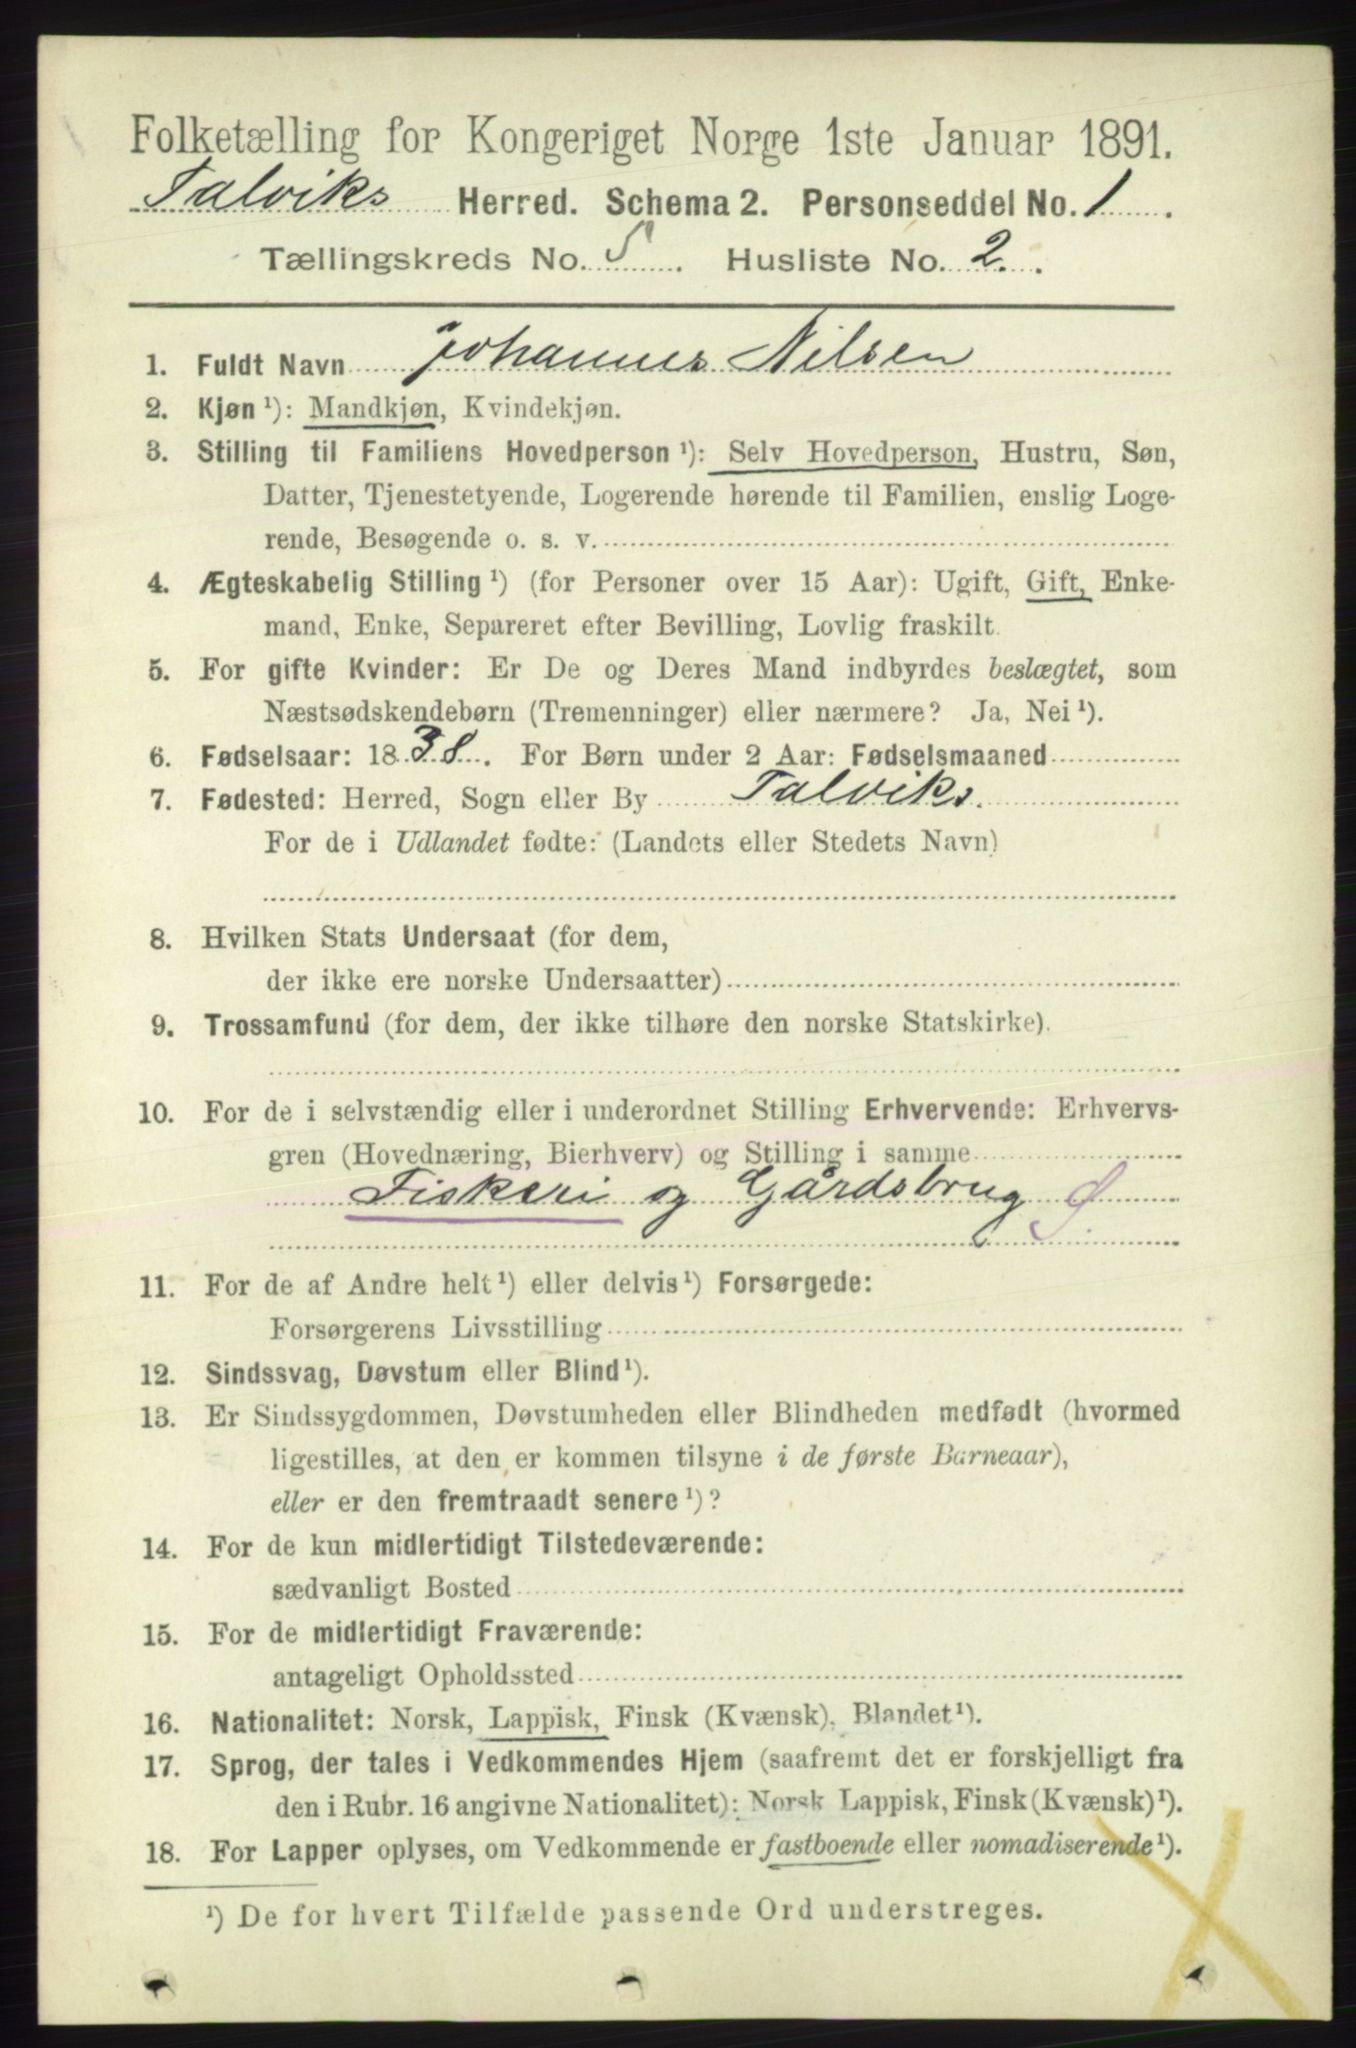 Folketælling for Kongeriget Norge 1ste Januar 1891.
Talviks Herred. Schema 2. Personseddel No. 1.
Tællingskreds No. 5. Husliste No. 2.
1. Fuldt Navn Johannes Nilsen
2. Kjøn ¹): Mandkjøn, Kvindekjøn.
3. Stilling til Familiens Hovedperson ¹): Selv Hovedperson, Hustru, Søn,
Datter, Tjenestetyende, Logerende hørende til Familien, enslig Loge-
rende, Besøgende o. s. v.
4. Ægteskabelig Stilling ¹) (for Personer over 15 Aar): Ugift, Gift, Enke-
mand, Enke, Separeret efter Bevilling, Lovlig fraskilt.
5. For gifte Kvinder: Er De og Deres Mand indbyrdes beslægtet, som
Næstsødskendebørn (Tremenninger) eller nærmere? Ja, Nei ¹).
6. Fødselsaar: 1838. For Børn under 2 Aar: Fødselsmaaned
7. Fødested: Herred, Sogn eller By Talviks.
For de i Udlandet fødte: (Landets eller Stedets Navn)
8. Hvilken Stats Undersaat (for dem,
der ikke ere norske Undersaatter)
9. Trossamfund (for dem, der ikke tilhøre den norske Statskirke).
10. For de i selvstændig eller i underordnet Stilling Erhvervende: Erhvervs-
gren (Hovednæring, Bierhverv) og Stilling i samme
Fiskeri og Gårdsbrug
11. For de af Andre helt ¹) eller delvis ¹) Forsørgede:
Forsørgerens Livsstilling
12. Sindssvag, Døvstum eller Blind ¹).
13. Er Sindssygdommen, Døvstumheden eller Blindheden medfødt (hvormed
ligestilles, at den er kommen tilsyne i de første Barneaar),
eller er den fremtraadt senere ¹)?
14. For de kun midlertidigt Tilstedeværende:
sædvanligt Bosted
15. For de midlertidigt Fraværende:
antageligt Opholdssted
16. Nationalitet: Norsk, Lappisk, Finsk (Kvænsk), Blandet ¹).
17. Sprog, der tales i Vedkommendes Hjem (saafremt det er forskjelligt fra
den i Rubr. 16 angivne Nationalitet): Norsk Lappisk, Finsk (Kvænsk) ¹).
18. For Lapper oplyses, om Vedkommende er fastboende eller nomadiserende ¹).
¹) De for hvert Tilfælde passende Ord understreges.